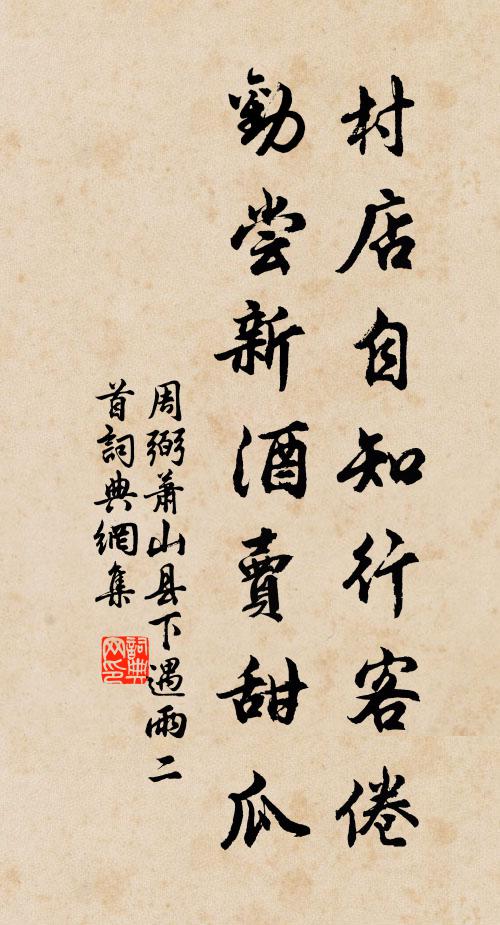 村店自知行客倦
勸尝新酒賣甜瓜
周弼萧山县下遇雨二
首詞典網集
詞典
网印